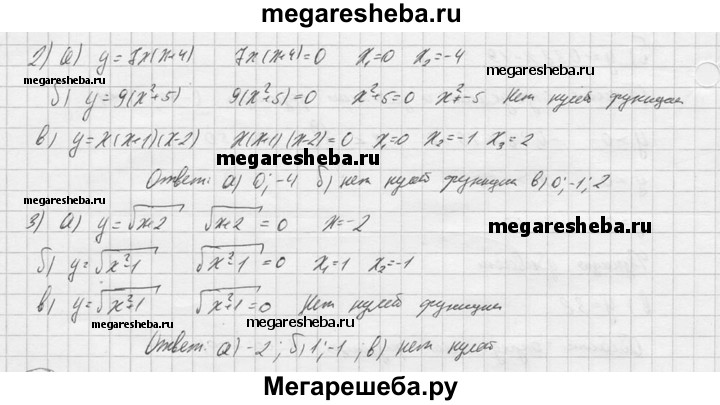 megaresheba.ru
2) а) y = 7x(x+4) 7x(x+4)=0 x₁=0 x₂=-4
megaresheba.ru
megaresheba.ru
б) y = 9(x²+5) 9(x²+5)=0 x²+5=0 x²≠-5 Нет нулей функции
в) y = x(x+1)(x-2) x(x+1)(x-2)=0 x₁=0 x₂=-1 x₃=2
megaresheba.ru
Ответ: а) 0; -4 б) нет нулей функции в) 0; -1; 2
megaresheba.ru
3) а) y = √x+2 √x+2 = 0 x=-2
megaresheba.ru
б) y = √x²-1 √x²-1 = 0 x₁=1 x₂=-1
в) y = √x²+1 √x²+1 = 0 Нет нулей функции
megaresheba.ru
megaresheba.ru
Ответ: а) -2; б) 1; -1; в) нет нулей
Мегарешеба.ру